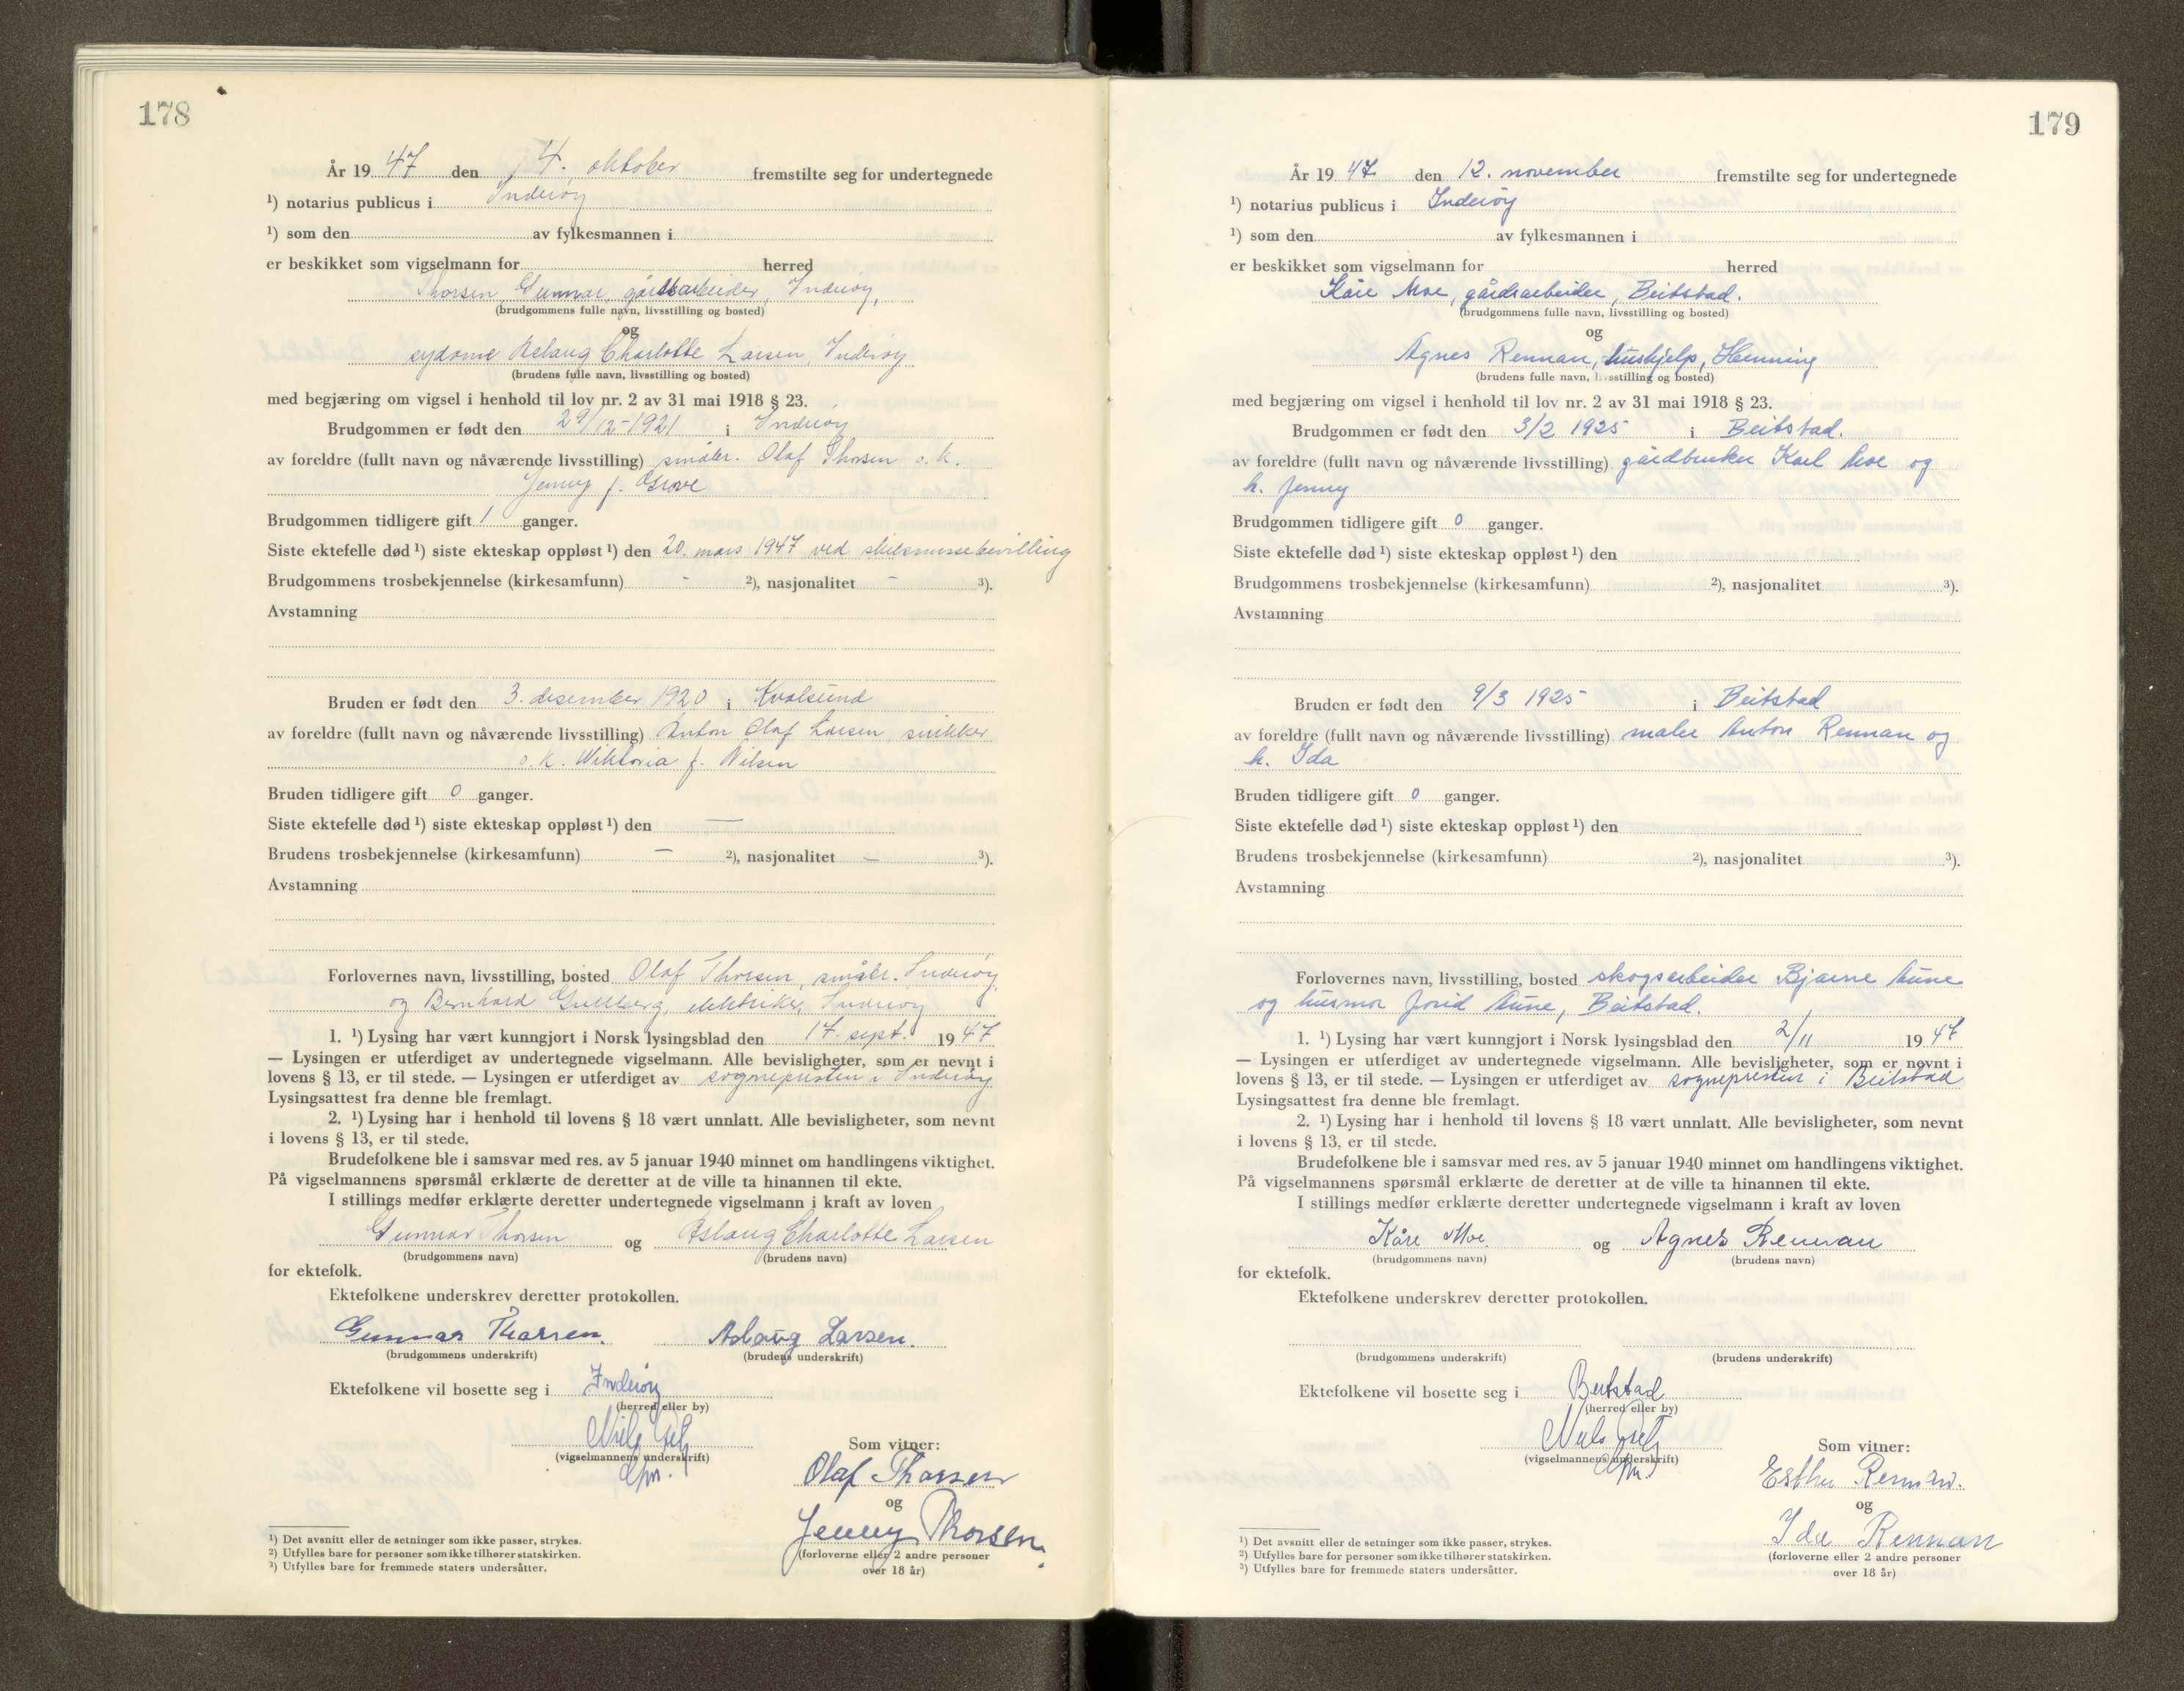 178
År 1947 den 4. oktober fremstilte seg for undertegnede
¹) notarius publicus i Inderøy
¹) som den av fylkesmannen i
er beskikket som vigselmann for herred
Thorsen, Gunnar, gårdsarbeider, Inderøy,
(brudgommens fulle navn, livsstilling og bosted)
og
sydame Aslaug Charlotte Larsen, Inderøy
(brudens fulle navn, livsstilling og bosted)
med begjæring om vigsel i henhold til lov nr. 2 av 31 mai 1918 § 23.
Brudgommen er født den 29/12-1921 i Inderøy
av foreldre (fullt navn og nåværende livsstilling) småbr. Olaf Thorsen o. k.
Jenny f. Grove
Brudgommen tidligere gift 1 ganger.
Siste ektefelle død ¹) siste ekteskap oppløst ¹) den 20. mars 1947 ved skilsmissebevilling
Brudgommens trosbekjennelse (kirkesamfunn) - ²), nasjonalitet - ³).
Avstamning
Bruden er født den 3. desember 1920 i Kvalsund
av foreldre (fullt navn og nåværende livsstilling) Anton Olaf Larsen, snikker
o. k. Wiktoria f. Nilsen
Bruden tidligere gift 0 ganger.
Siste ektefelle død ¹) siste ekteskap oppløst ¹) den —
Brudens trosbekjennelse (kirkesamfunn) — ²), nasjonalitet — ³).
Avstamning
Forlovernes navn, livsstilling, bosted Olaf Thorsen, småbr. Inderøy,
og Bernhard elektriker, Inderøy
1. ¹) Lysing har vært kunngjort i Norsk lysingsblad den 17. sept. 1947
— Lysingen er utferdiget av undertegnede vigselmann. Alle bevisligheter, som er nevnt i
lovens § 13, er til stede. — Lysingen er utferdiget av sognepresten i Inderøy
Lysingsattest fra denne ble fremlagt.
2. ¹) Lysing har i henhold til lovens § 18 vært unnlatt. Alle bevisligheter, som nevnt
i lovens § 13, er til stede.
Brudefolkene ble i samsvar med res. av 5 januar 1940 minnet om handlingens viktighet.
På vigselmannens spørsmål erklærte de deretter at de ville ta hinannen til ekte.
I stillings medfør erklærte deretter undertegnede vigselmann i kraft av loven
Gunnar Thorsen og Aslaug Charlotte Larsen
(brudgommens navn) (brudens navn)
for ektefolk.
Ektefolkene underskrev deretter protokollen.
Gunnar Thorsen. Aslaug Larsen.
(brudgommens underskrift) (brudens underskrift)
Ektefolkene vil bosette seg i Inderøy
(herred eller by)
Niels
(vigselmannens underskrift)
Som vitner:
Olaf Thorsen
og
Jenny Thorsen.
(forloverne eller 2 andre personer
over 18 år)
¹) Det avsnitt eller de setninger som ikke passer, strykes.
²) Utfylles bare for personer som ikke tilhører statskirken.
³) Utfylles bare for fremmede staters undersåtter.
179
År 1947. den 12. november fremstilte seg for undertegnede
¹) notarius publicus i Inderøy
¹) som den av fylkesmannen i
er beskikket som vigselmann for herred
Kåre Moe, gårdsarbeider, Beitstad.
(brudgommens fulle navn, livsstilling og bosted)
og
Agnes Rennan, hushjelp, Henning
(brudens fulle navn, livsstilling og bosted)
med begjæring om vigsel i henhold til lov nr. 2 av 31 mai 1918 § 23.
Brudgommen er født den 3/2 1925 i Beitstad.
av foreldre (fullt navn og nåværende livsstilling) gårdbruker Karl Moe og
h. Jenny
Brudgommen tidligere gift 0 ganger.
Siste ektefelle død ¹) siste ekteskap oppløst ¹) den
Brudgommens trosbekjennelse (kirkesamfunn) ²), nasjonalitet ³).
Avstamning
Bruden er født den 9/3 1925 i Beitstad
av foreldre (fullt navn og nåværende livsstilling) maler Anton Rennan og
h. Ida
Bruden tidligere gift 0 ganger.
Siste ektefelle død ¹) siste ekteskap oppløst ¹) den
Brudens trosbekjennelse (kirkesamfunn) ²), nasjonalitet ³).
Avstamning
Forlovernes navn, livsstilling, bosted skogsarbeider Bjarne Aune
og husmor Jorid Aune, Beitstad.
1. ¹) Lysing har vært kunngjort i Norsk lysingsblad den 2/11 1947
— Lysingen er utferdiget av undertegnede vigselmann. Alle bevisligheter, som er nevnt i
lovens § 13, er til stede. — Lysingen er utferdiget av sognepresten i Beitstad
Lysingsattest fra denne ble fremlagt.
2. ¹) Lysing har i henhold til lovens § 18 vært unnlatt. Alle bevisligheter, som nevnt
i lovens § 13, er til stede.
Brudefolkene ble i samsvar med res. av 5 januar 1940 minnet om handlingens viktighet.
På vigselmannens spørsmål erklærte de deretter at de ville ta hinannen til ekte.
I stillings medfør erklærte deretter undertegnede vigselmann i kraft av loven
Kåre Moe. og Agnes Rennan
(brudgommens navn) (brudens navn)
for ektefolk.
Ektefolkene underskrev deretter protokollen.
(brudgommens underskrift) (brudens underskrift)
Ektefolkene vil bosette seg i Beitstad
(herred eller by)
Niels
(vigselmannens underskrift)
Som vitner:
Esther Rennan.
og
Ida Rennan
(forloverne eller 2 andre personer
over 18 år)
¹) Det avsnitt eller de setninger som ikke passer, strykes.
²) Utfylles bare for personer som ikke tilhører statskirken.
³) Utfylles bare for fremmede staters undersåtter.